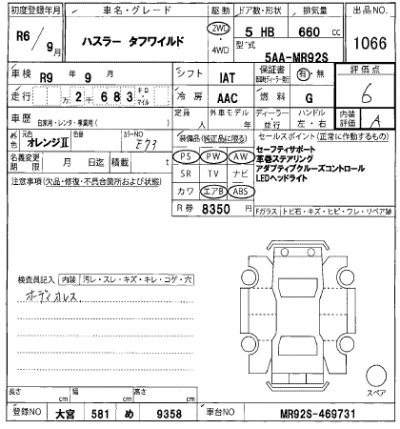 初度登録年月 車名・グレード 駆動 ドア数・形状 排気量 出品NO
R6/9月 ハスラー タフワイルド 2WD ・ 4WD 5 HB 660 cc 1066
型式 5AA-MR92S
車検 R9 年 9 月 シフト IAT 保証書 有・無 評価点
走行 万 2 千 6 8 3 キロ・マイル 冷房 AAC 燃料 G 6
車歴 自家用・レンタ・事業用( ) 定員 人 外車モデル 年 ディーラー・並行 ハンドル 左・右 内装評価 A
色 元色 オレンジⅡ 色替 カラーNO E73 装備品(純正品に限る) セールスポイント(正常に作動するもの)
名義変更期限 月 日迄 積載 t PS PW AW セーフティサポート
革巻ステアリング
注意事項(欠品・修復・不具合箇所および状態) SR TV ナビ アダプティブクルーズコントロール
カワ エアB ABS LEDヘッドライト
R券 8350 円 Fガラス トビ石・キズ・ヒビ・ワレ・リペア跡
検査員記入 内装 汚レ・スレ・キズ・キレ・コゲ・穴
ボディオレス
スペア
長さ cm 幅 cm 高さ cm
登録NO 大宮 581 め 9358 車台NO MR92S-469731